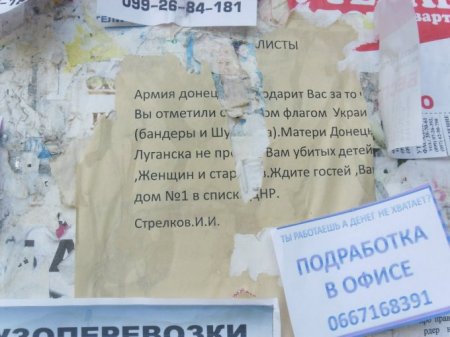 099-26-84-181
ЛИСТЫ
Армия донец одарит Вас за то
Вы отметили с ом флагом Украи
(бандеры и Шу а).Матери Донец
Луганска не про Вам убитых детей
,Женщин и стар а.Ждите гостей ,Ва
дом №1 в списк ДНР.
Стрелков.И.И.
ТЫ РАБОТАЕШЬ А ДЕНЕГ НЕ ХВАТАЕТ?
ПОДРАБОТКА
В ОФИСЕ
0667168391
УЗОПЕРЕВОЗКИ